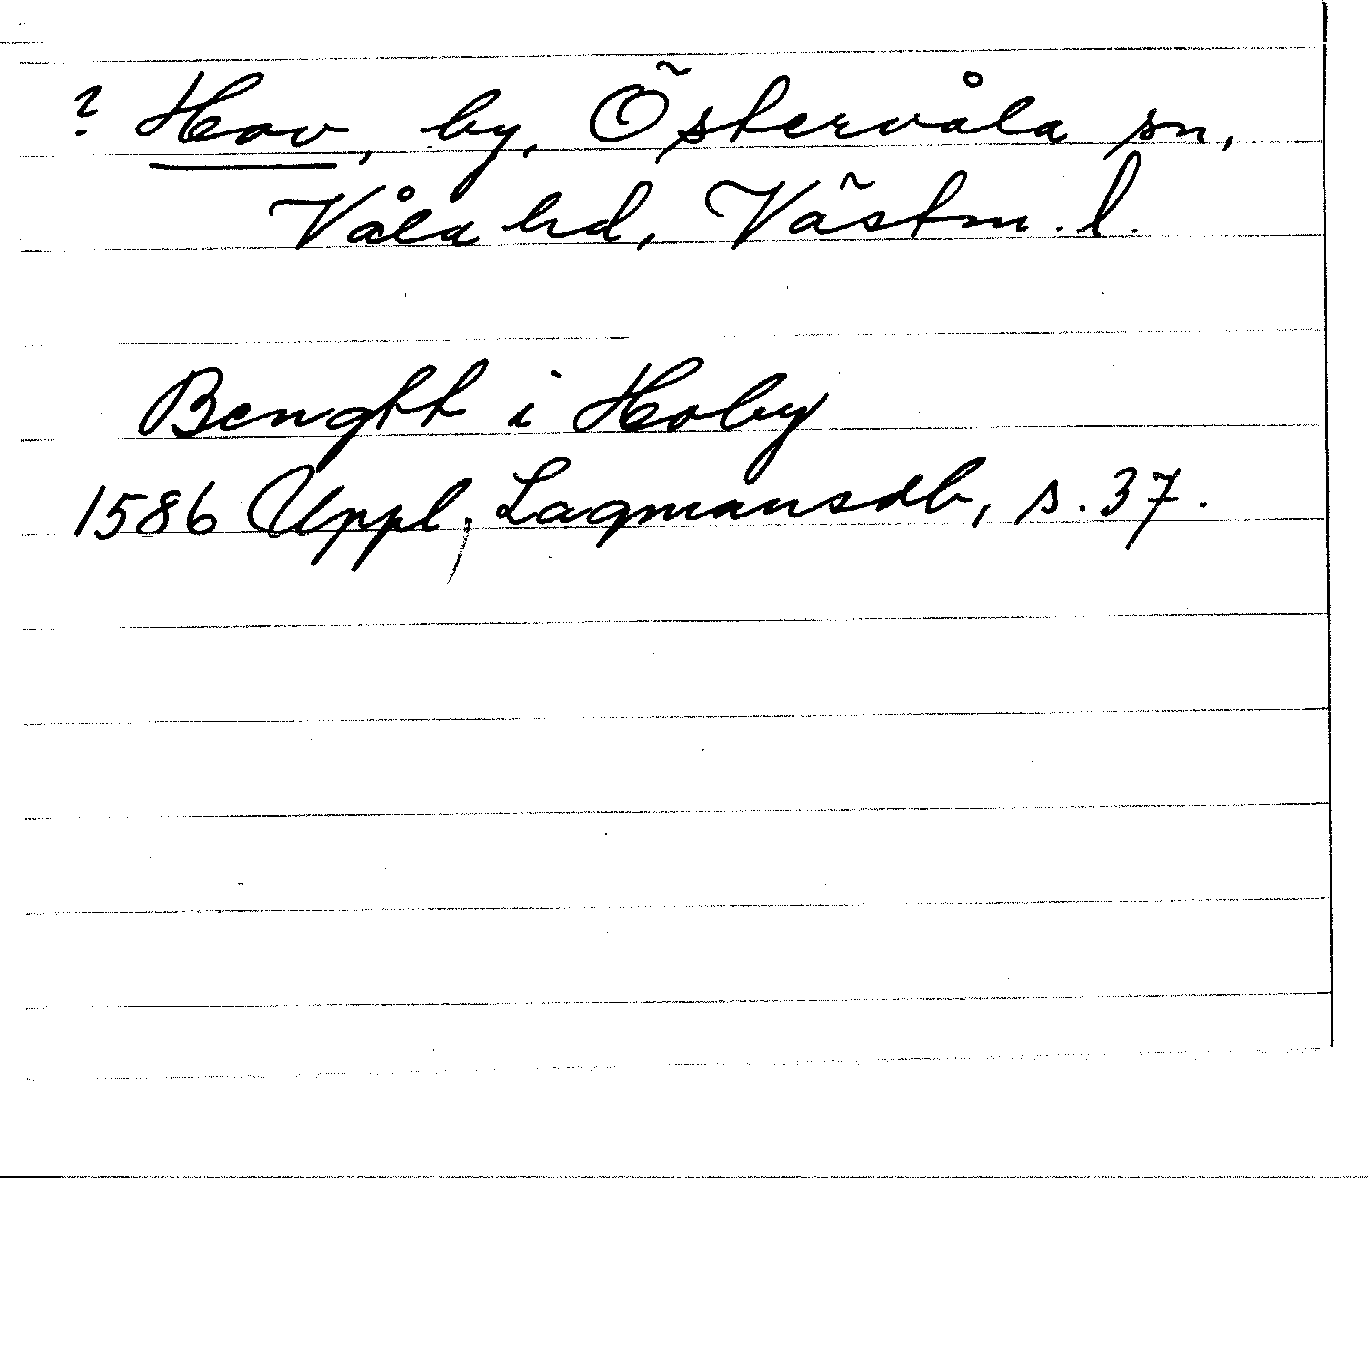 ? Hov, by, Östervåla sn,
Våla hd, Västm. l.
Benghtt i Hoby
1586 Uppl. Lagmansdb, s. 37.